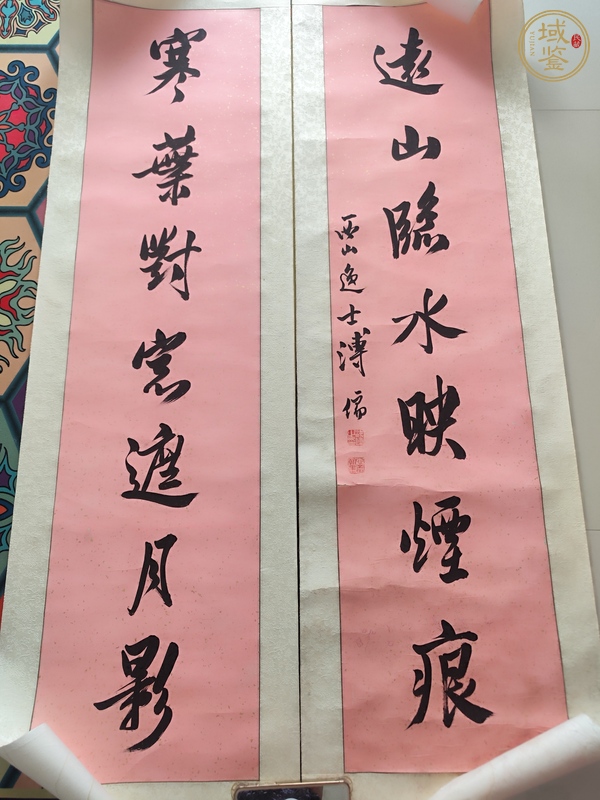 遠山臨水映煙痕
西山逸士溥儒
寒葉對窓遮月影
域鉴
YUJIAN